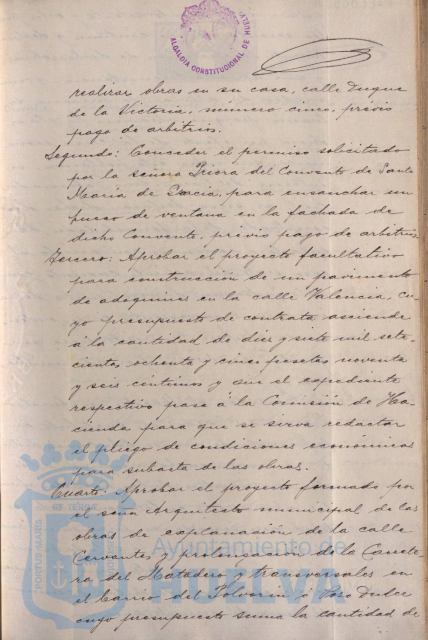 ALCALDIA CONSTITUCIONAL DE HUELVA
realizar obras en su casa, calle Duque
de la Victoria, número cinco, previo
pago de arbitrios.
Segundo: Conceder el permiso solicitado
por la señora Priora del Convento de Santa
María de Gracia, para ensanchar un
hueco de ventana en la fachada de
dicho Convento, previo pago de arbitrios
Tercero: Aprobar el proyecto facultativo
para construcción de un pavimento
de adoquines en la calle Valencia, cu-
yo presupuesto de contrata asciende
á la cantidad de diez y siete mil sete-
cientas ochenta y cinco pesetas noventa
y seis céntimos y que el expediente
respectivo pase á la Comisión de Ha-
cienda para que se sirva redactar
el pliego de condiciones económicas
para subasta de las obras.
Cuarto: Aprobar el proyecto formado por
el señor Arquitecto municipal de las
obras de explanación de la calle
Cervantes y prolongación de la Carrete-
ra del Matadero y transversales en
el barrio del Polvorín ó Pozo Dulce
cuyo presupuesto suma la cantidad de
Ayuntamiento de
HUELVA
PORTUS MARIS